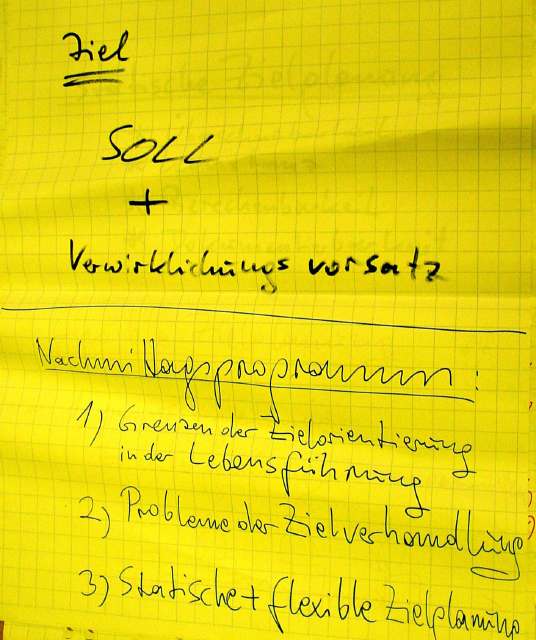 Ziel
SOLL
+
Verwirklichungsvorsatz
Nachmittagsprogramm:
1) Grenzen der Zielorientierung
in der Lebensführung
2) Probleme der Zielverhandlung
3) Statische + flexible Zielplanung